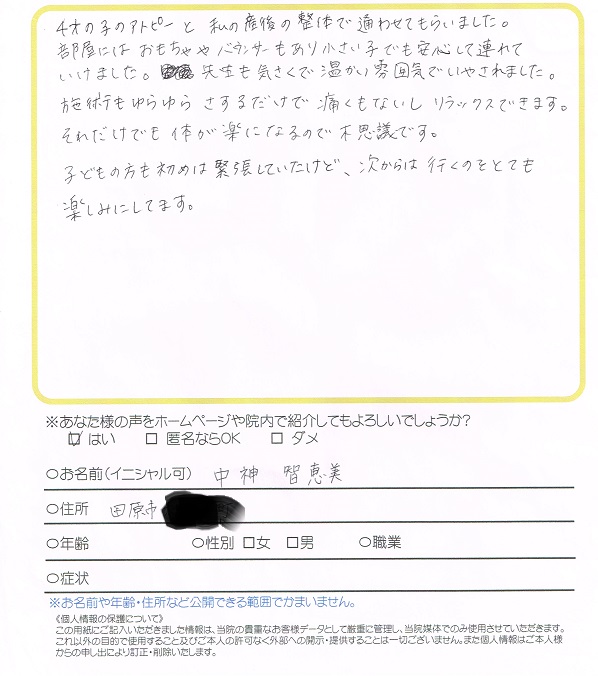 4才の子のアトピーと 私の産後の整体で通わせてもらいました。
部屋には おもちゃや バウンサーもあり小さい子でも安心して連れて
いけました。 先生も気さくで 温かい 雰囲気でいやされました。
施術もゆらゆら さするだけで 痛くもないし リラックスできます。
それだけでも 体が 楽になるので 不思議です。
子どもの方も初めは 緊張していたけど、次からは 行くのをとても
楽しみにしてます。
※あなた様の声をホームページや院内で紹介してもよろしいでしょうか?
☑ はい □ 匿名ならOK □ ダメ
○お名前(イニシャル可) 中神 智恵美
○住所 田原市
○年齢 ○性別 □女 □男 ○職業
○症状
※お名前や年齢・住所など公開できる範囲でかまいません。
《個人情報の保護について》
この用紙にご記入いただきました情報は、当院の貴重なお客様データとして厳重に管理し、当院媒体でのみ使用させていただきます。
これ以外の目的で使用すること及びご本人の許可なく外部への開示・提供することは一切ございません。また個人情報はご本人様
からの申し出により訂正・削除いたします。